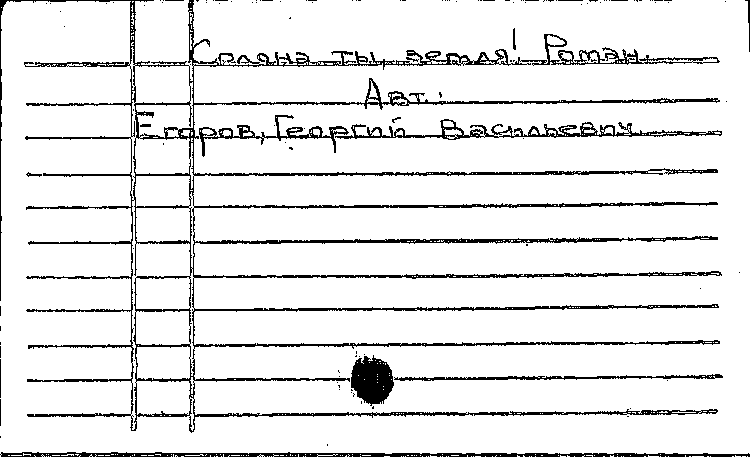 Солона ты, земля! Роман.
Авт.:
Егоров, Георгий Васильевич.